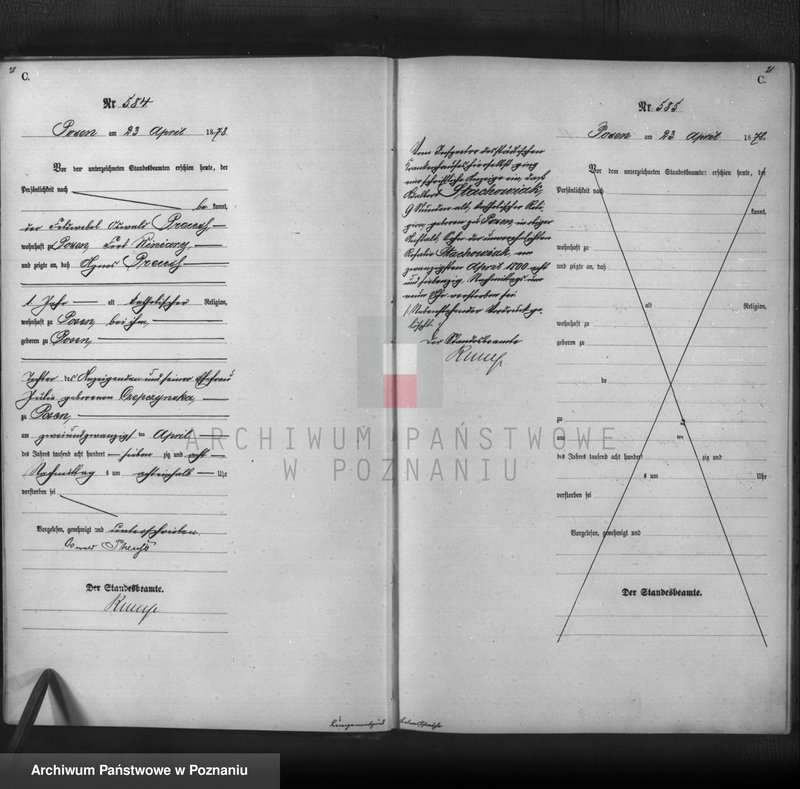 C.
Nr. 584.
Posen am 23 April 1878.
Vor der unterzeichneten Standesbeamten erschien heute, der
Persönlichkeit nach
bekannt,
der Feldwebel Oswald
wohnhaft zu Posen, Fort Winiary
und zeigte an, daß Agnes
1 Jahr alt katholischer Religion,
wohnhaft zu Posen, bei ihm
geboren zu Posen,
Tochter des Anzeigenden und seiner Ehefrau
Julie geborenen
zu Posen,
am zweiundzwanzigsten April
des Jahrs tausend acht hundert sieben zig und acht
Nachmittag s um achteinhalb Uhr
verstorben sei
Vorgelesen, genehmigt und unterschrieben
Oswald
Der Standesbeamte.
C.
Nr. 585
Posen am 23 April 1878.
Vom Inspector des städtischen
Krankenhauses hierselbst ging
eine schriftliche Anzeige ein, daß
Stachowiak,
9 Stunden alt, katholischer Reli-
gion, geboren zu Posen in obiger
Anstalt, Sohn der unverehelichten
Stachowiak, am
zwanzigsten April 1800 acht
und siebenzig, Nachmittags um
neun Uhr verstorben sei
Nebenstehender Vordruck ge-
löscht.
Der Standesbeamte
Vor dem unterzeichneten Standesbeamten erschien heute, der
Persönlichkeit nach
kannt,
wohnhaft zu
und zeigte an, daß
alt Religion,
wohnhaft zu
geboren zu
de
zu
am ten
des Jahrs tausend acht hundert zig und
s um Uhr
verstorben sei
Vorgelesen, genehmigt und
Der Standesbeamte.
ARCHIWUM PAŃSTWOWE
W POZNANIU
Archiwum Państwowe w Poznaniu